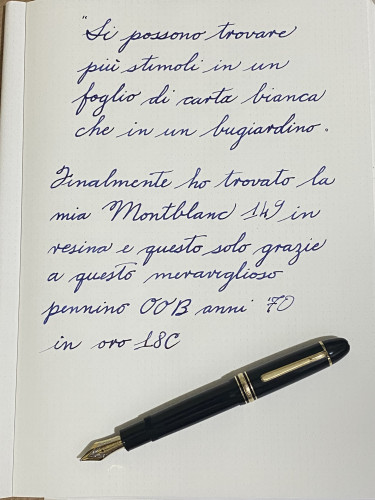 "Si possono trovare
più stimoli in un
foglio di carta bianca
che in un bugiardino.
Finalmente ho trovato la
mia Montblanc 149 in
resina e questo solo grazie
a questo meraviglioso
pennino OOB anni '70
in oro 18C